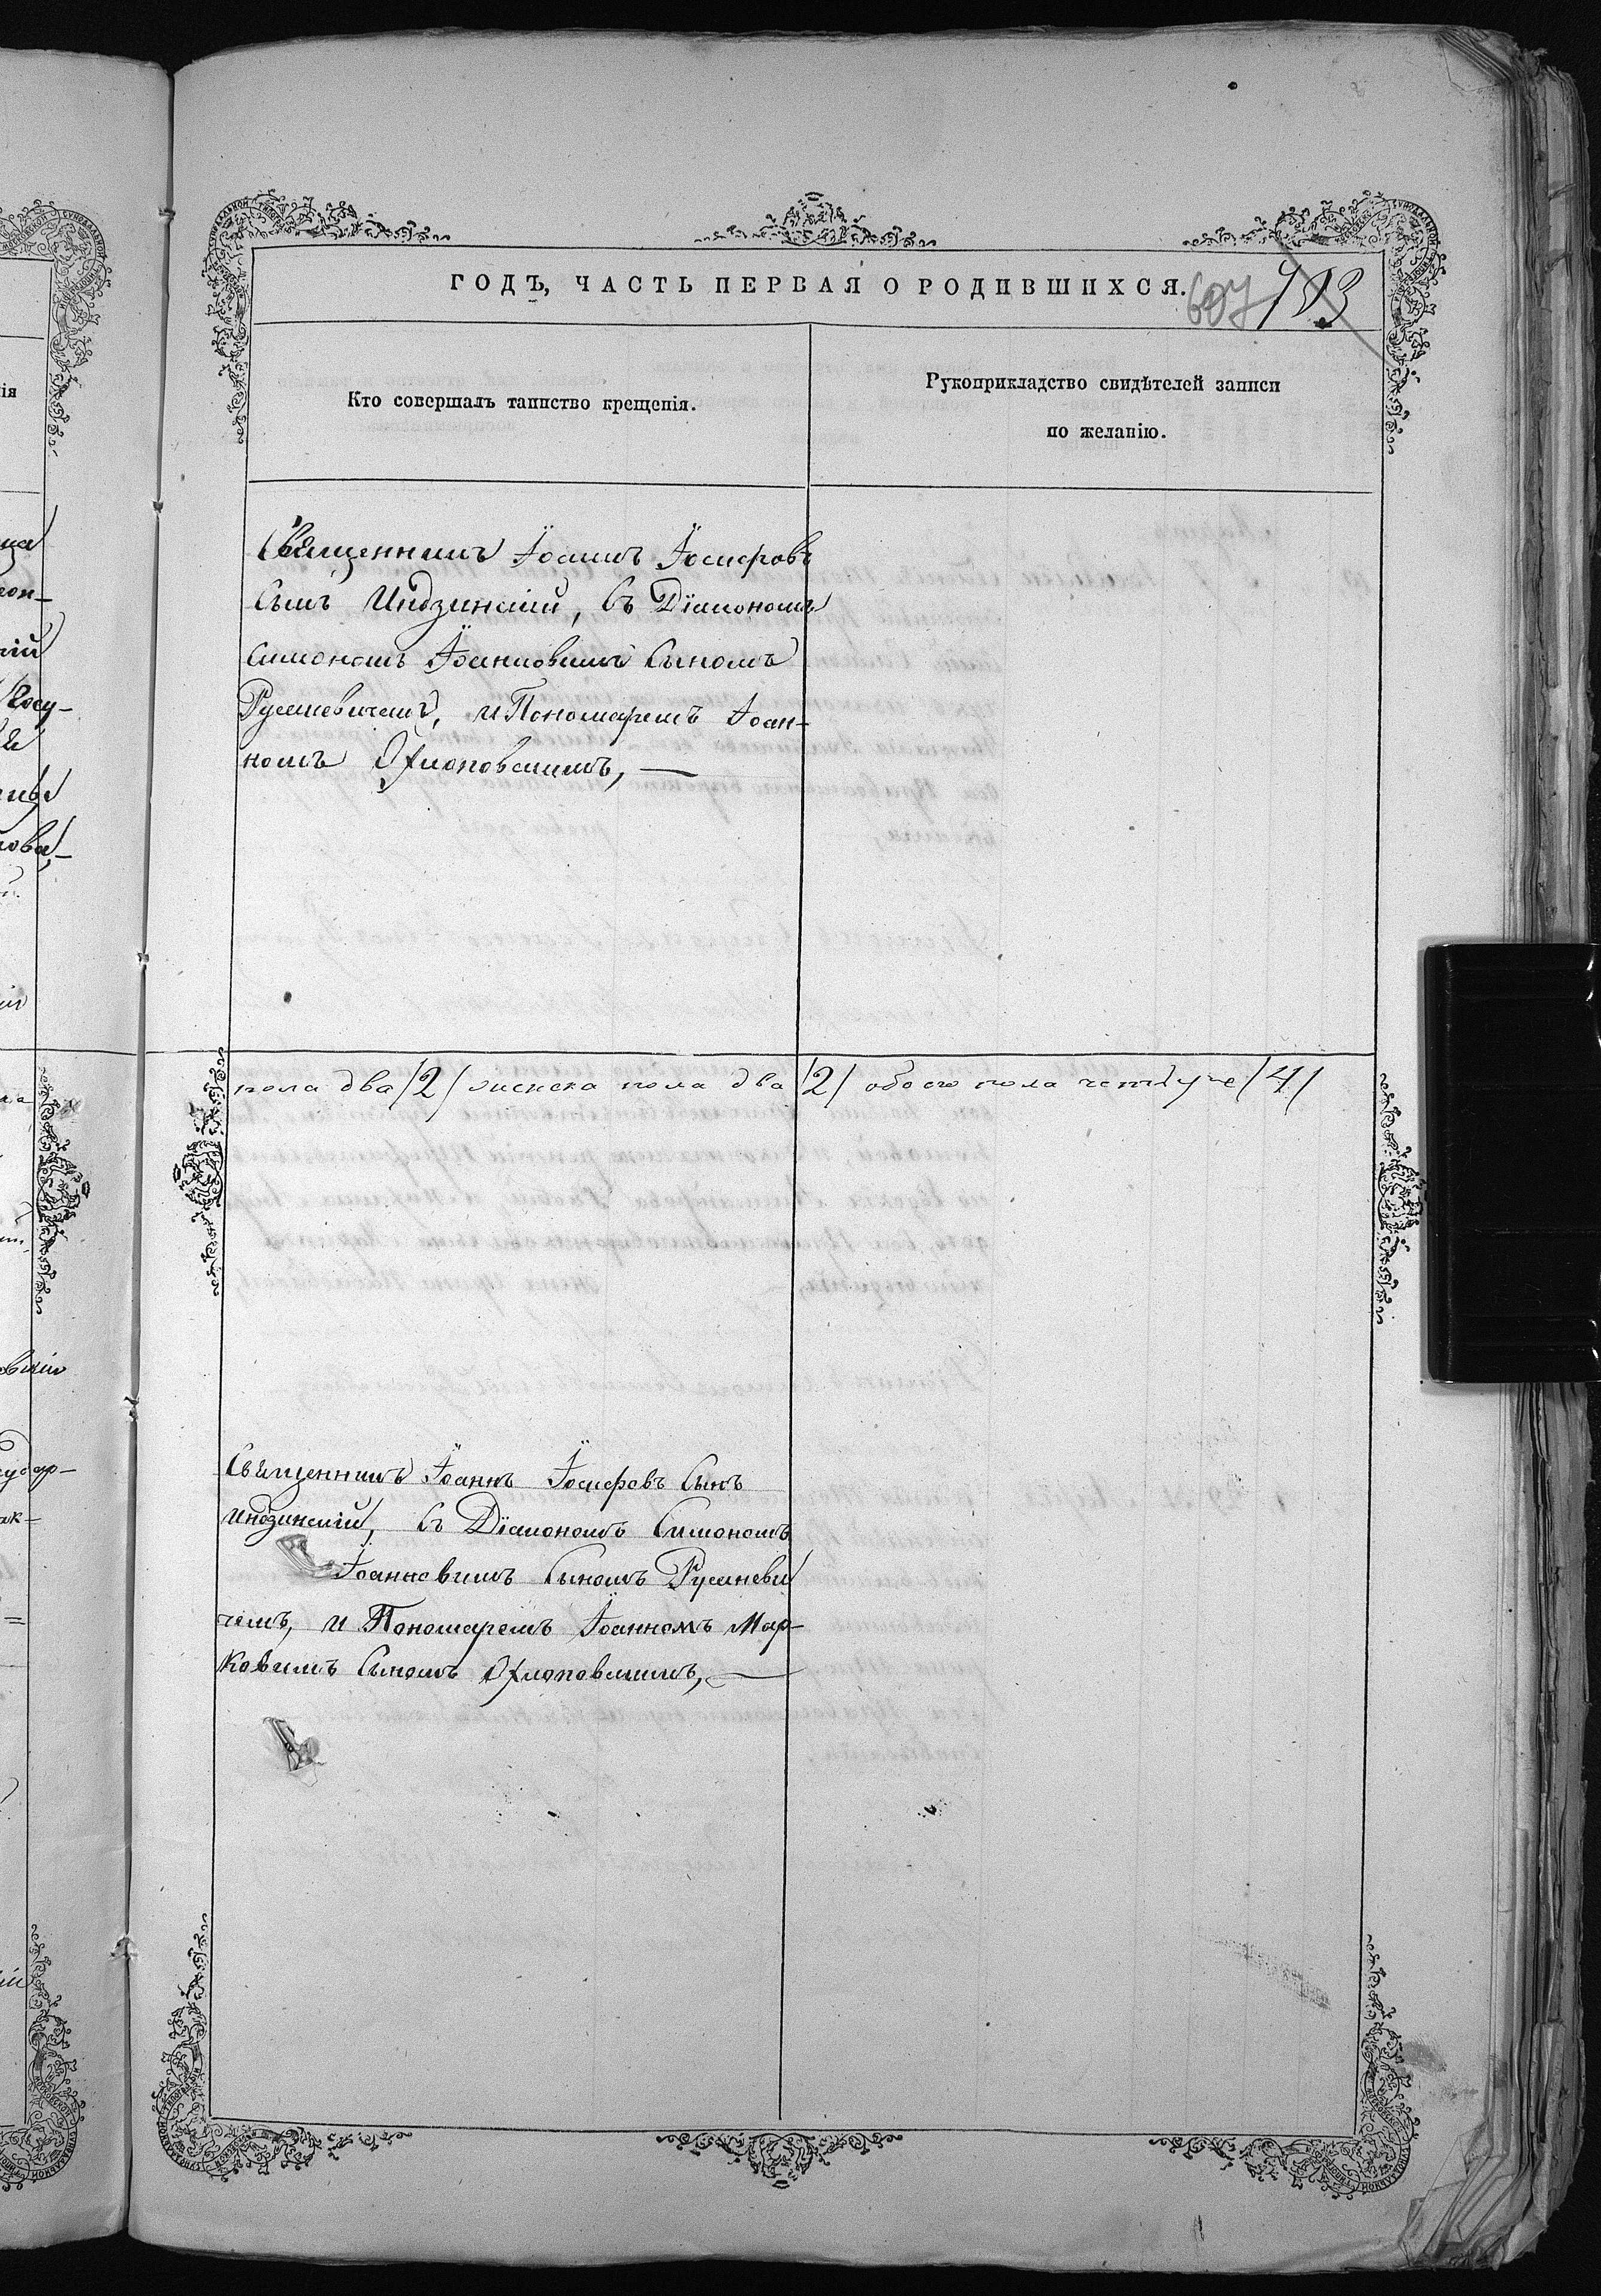 ГОДЪ, ЧАСТЬ ПЕРВАЯ О РОДИВШИХСЯ.
607 193
Кто совершалъ таинство крещенія.
Рукоприкладство свидѣтелей записи
по желанію.
Священникъ Іоаннъ Іосифовъ
Сынъ Индзинскій, Съ Діакономъ
Симономъ Іоанновымъ Сыномъ
Русиневичемъ, и Пономаремъ Іоан-
номъ Охлоповскимъ, —
пола два /2/ женска пола два /2/ обоего пола четыре /4/
Священникъ Іоаннъ Іосифовъ Сынъ
Индзинскій, Съ Діакономъ Симономъ
Іоанновымъ Сыномъ Русиневи
чемъ, и Пономаремъ Іоанномъ Мар-
ковымъ Сыномъ Охлоповскимъ, —